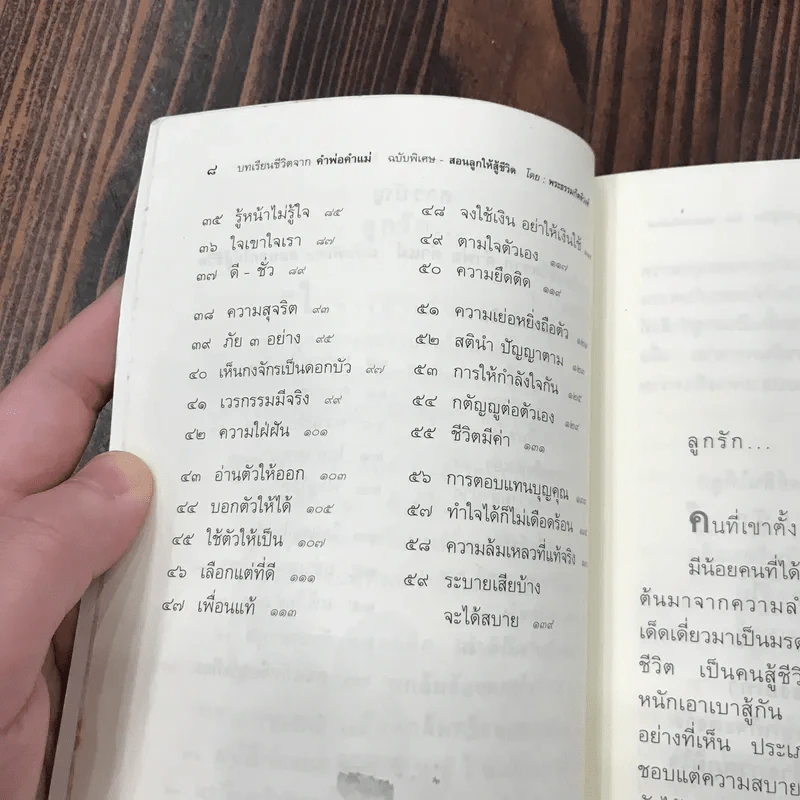 ๘ บทเรียนชีวิตจาก คำพ่อคำแม่ ฉบับพิเศษ - สอนลูกให้สู้ชีวิต โดย : พระธรรมกิตติวงศ์
๓๕ รู้หน้าไม่รู้ใจ ๘๕
๓๖ ใจเขาใจเรา ๘๗
๓๗ ดี - ชั่ว ๘๙
๓๘ ความสุจริต ๙๓
๓๙ ภัย ๓ อย่าง ๙๕
๔๐ เห็นกงจักรเป็นดอกบัว ๙๗
๔๑ เวรกรรมมีจริง ๙๙
๔๒ ความใฝ่ฝัน ๑๐๑
๔๓ อ่านตัวให้ออก ๑๐๓
๔๔ บอกตัวให้ได้ ๑๐๕
๔๕ ใช้ตัวให้เป็น ๑๐๗
๔๖ เลือกแต่ที่ดี ๑๑๑
๔๗ เพื่อนแท้ ๑๑๓
๔๘ จงใช้เงิน อย่าให้เงินใช้
๔๙ ตามใจตัวเอง ๑๑๗
๕๐ ความยึดติด ๑๑๙
๕๑ ความเย่อหยิ่งถือตัว
๕๒ สตินำ ปัญญาตาม
๕๓ การให้กำลังใจกัน ๑๒๕
๕๔ กตัญญูต่อตัวเอง ๑๒๙
๕๕ ชีวิตมีค่า ๑๓๑
๕๖ การตอบแทนบุญคุณ
๕๗ ทำใจได้ก็ไม่เดือดร้อน
๕๘ ความล้มเหลวที่แท้จริง
๕๙ ระบายเสียบ้าง
จะได้สบาย ๑๓๙
ลูกรัก...
คนที่เขาตั้ง
มีน้อยคนที่ได้
ต้นมาจากความลำ
เด็ดเดี่ยวมาเป็นมรด
ชีวิต เป็นคนสู้ชีวิ
หนักเอาเบาสู้กัน
อย่างที่เห็น ประเภ
ชอบแต่ความสบาย